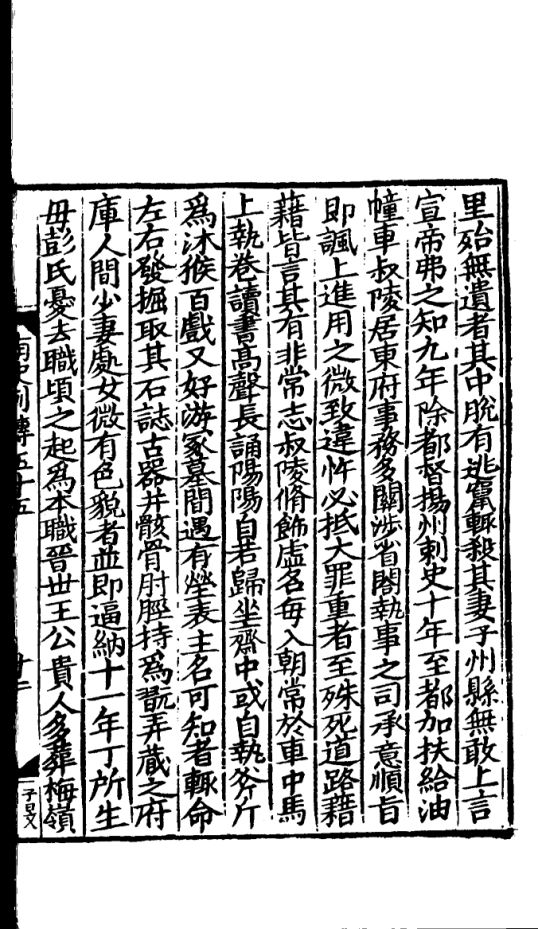 里殆無遺者其中脫有逃竄輙殺其妻子州縣無敢上言
宣帝弗之知九年除都督揚州刺史十年至都加扶給油
幢車叔陵居東府事務多關涉省閣執事之司承意順旨
即諷上進用之微致違忤必抵大罪重者至殊死道路藉
藉皆言其有非常志叔陵脩飾虛名每入朝常於車中馬
上執卷讀書高聲長誦陽陽自若歸坐齋中或自執斧斤
爲沐猴百戲又好游冢墓間遇有塋表主名可知者輙命
左右發掘取其石誌古器并骸骨肘脛持爲翫弄藏之府
庫人間少妻處女微有色貌者並即逼納十一年丁所生
毋彭氏憂去職頃之起爲本職晉世王公貴人多葬梅嶺
南史列傳五十五
十二
子昃文